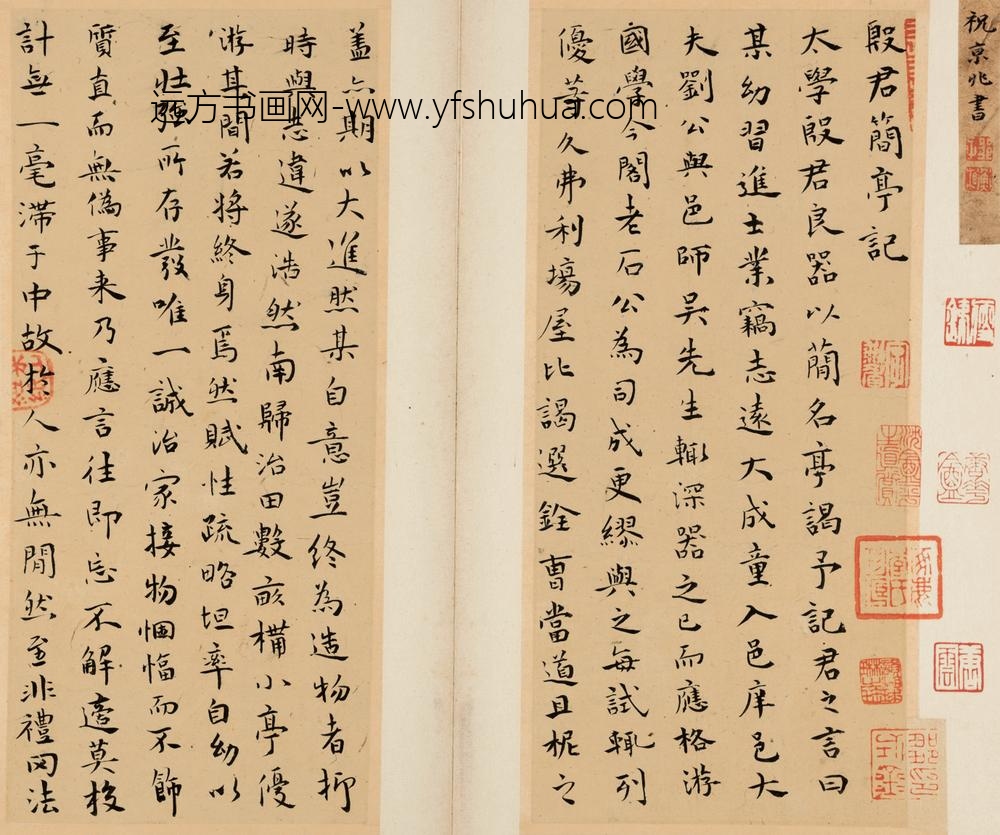 祝京兆書
殷君簡亭記
太學殷君良器以簡名亭謁予記君之言曰
某幼習進士業竊志遠大成童入邑庠邑大
夫劉公與邑師吳先生輙深器之已而應格游
國學今閣老石公為司成更繆與之每試輙列
優等久弗利場屋比謁選銓曹當道且柅之
蓋亦期以大進然某自意豈終為造物者抑
時與志違遂浩然南歸治田數畝構小亭優
游其間若將終身焉然賦性疏略坦率自幼以
至壯強所存發唯一誠治家接物悃愊而不飾
質直而無偽事来乃應言往即忘不解邊莫校
計無一毫滯于中故於人亦無閒然至非禮罔法
远方书画网-www.yfshuhua.com